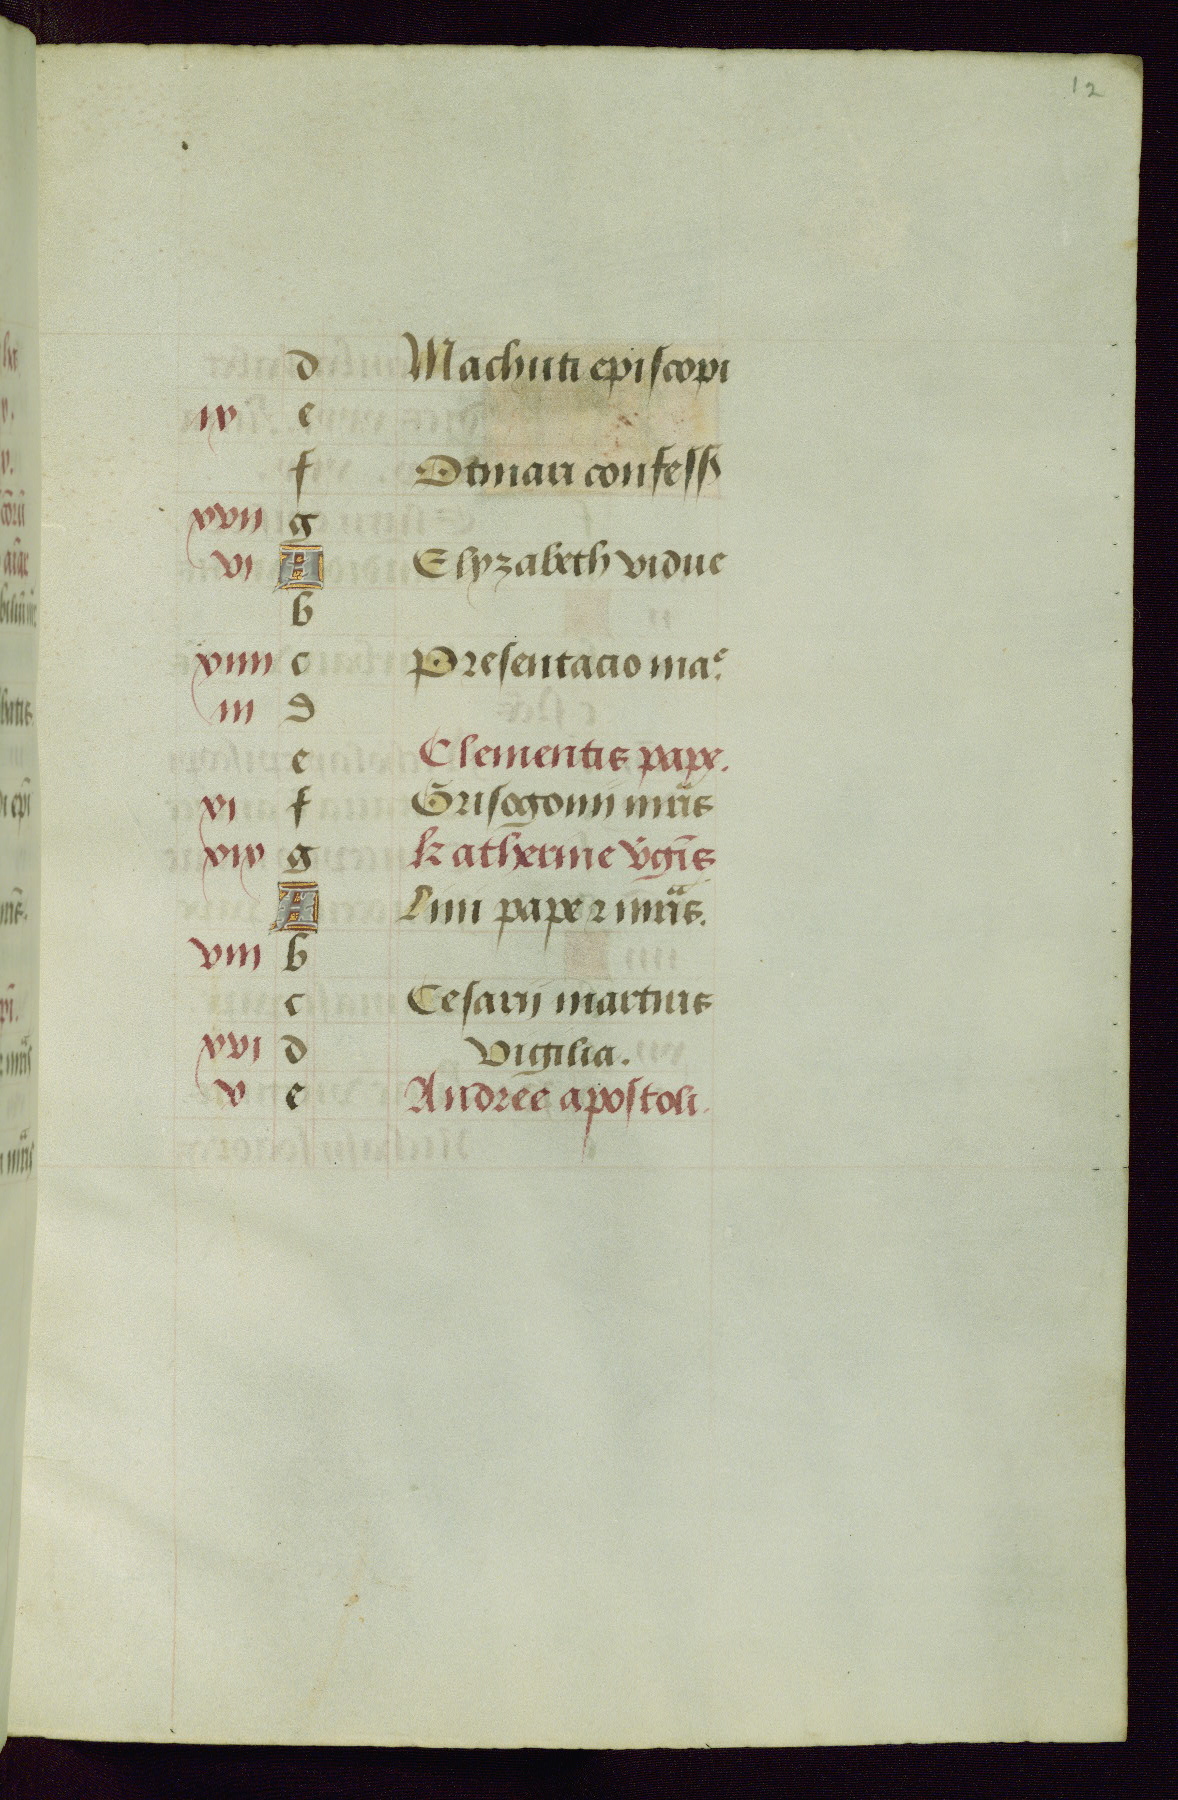 12
d Machuti episcopi
ix e
f Otmari confess
xvii g
vi A Elyzabeth vidue
b
xiiii c Presentacio ma.e
iii d
e Clementis pape.
xi f Grisogonii mris
xix g Katherine vgis
A Lini pape 2 mris.
viii b
c Cesarij martiris
xvi d Vigilia.
v e Andree apostoli.